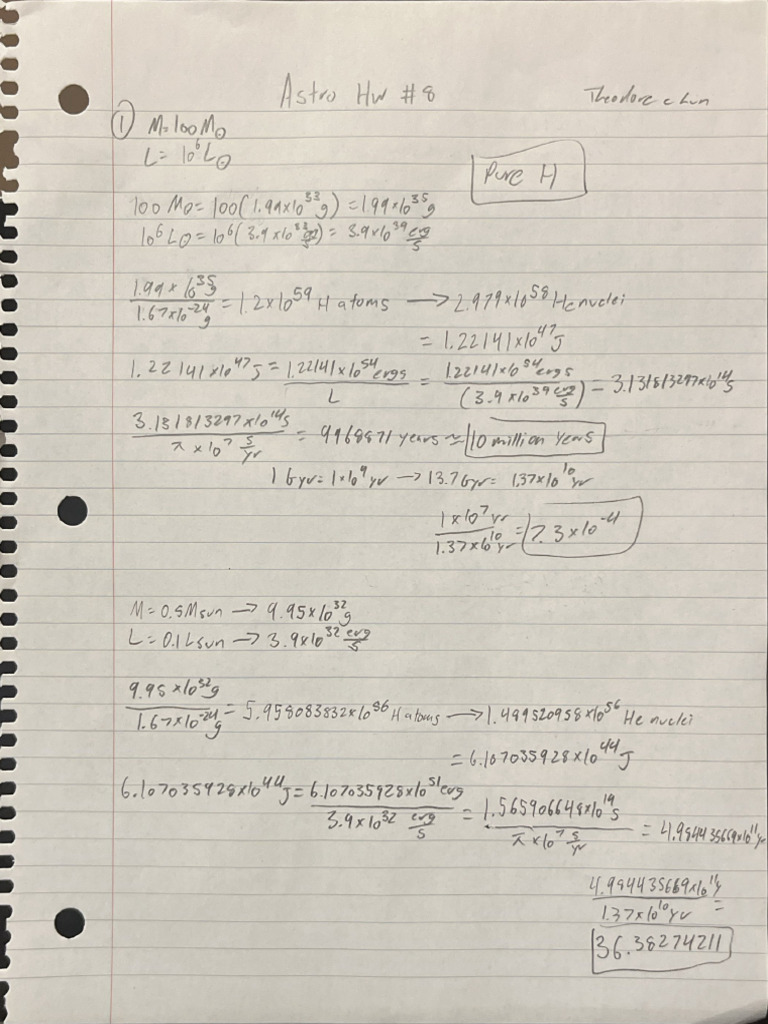 Astro Hw #8
Theodore Chun
① M=100M⊙
L= 10⁶L⊙
Pure H
100 M⊙= 100(1.99×10³³g) = 1.99×10³⁵g
10⁶L⊙= 10⁶(3.9×10³³ erg/s) = 3.9×10³⁹ erg/s
1.99×10³⁵g / 1.67×10⁻²⁴g = 1.2×10⁵⁹ H atoms → 2.979×10⁵⁸ He nuclei
= 1.22141×10⁴⁷J
1.22141×10⁴⁷J = 1.22141×10⁵⁴ergs / L = 1.22141×10⁵⁴ergs / (3.9×10³⁹ erg/s) = 3.131813297×10¹⁴s
3.131813297×10¹⁴s / π×10⁷ s/yr = 9968871 years ≈ 10 million years
1 Gyr= 1×10⁹yr → 13.7Gyr= 1.37×10¹⁰yr
1×10⁷yr / 1.37×10¹⁰yr = 7.3×10⁻⁴
M= 0.5Msun → 9.95×10³²g
L= 0.1Lsun → 3.9×10³² erg/s
9.95×10³²g / 1.67×10⁻²⁴g = 5.958083832×10⁵⁶ H atoms → 1.489520958×10⁵⁶ He nuclei
= 6.107035928×10⁴⁴J
6.107035928×10⁴⁴J = 6.107035928×10⁵¹erg / 3.9×10³² erg/s = 1.565906648×10¹⁹s / π×10⁷ s/yr = 4.984435669×10¹¹yr
4.984435669×10¹¹y / 1.37×10¹⁰yr =
36.38274211